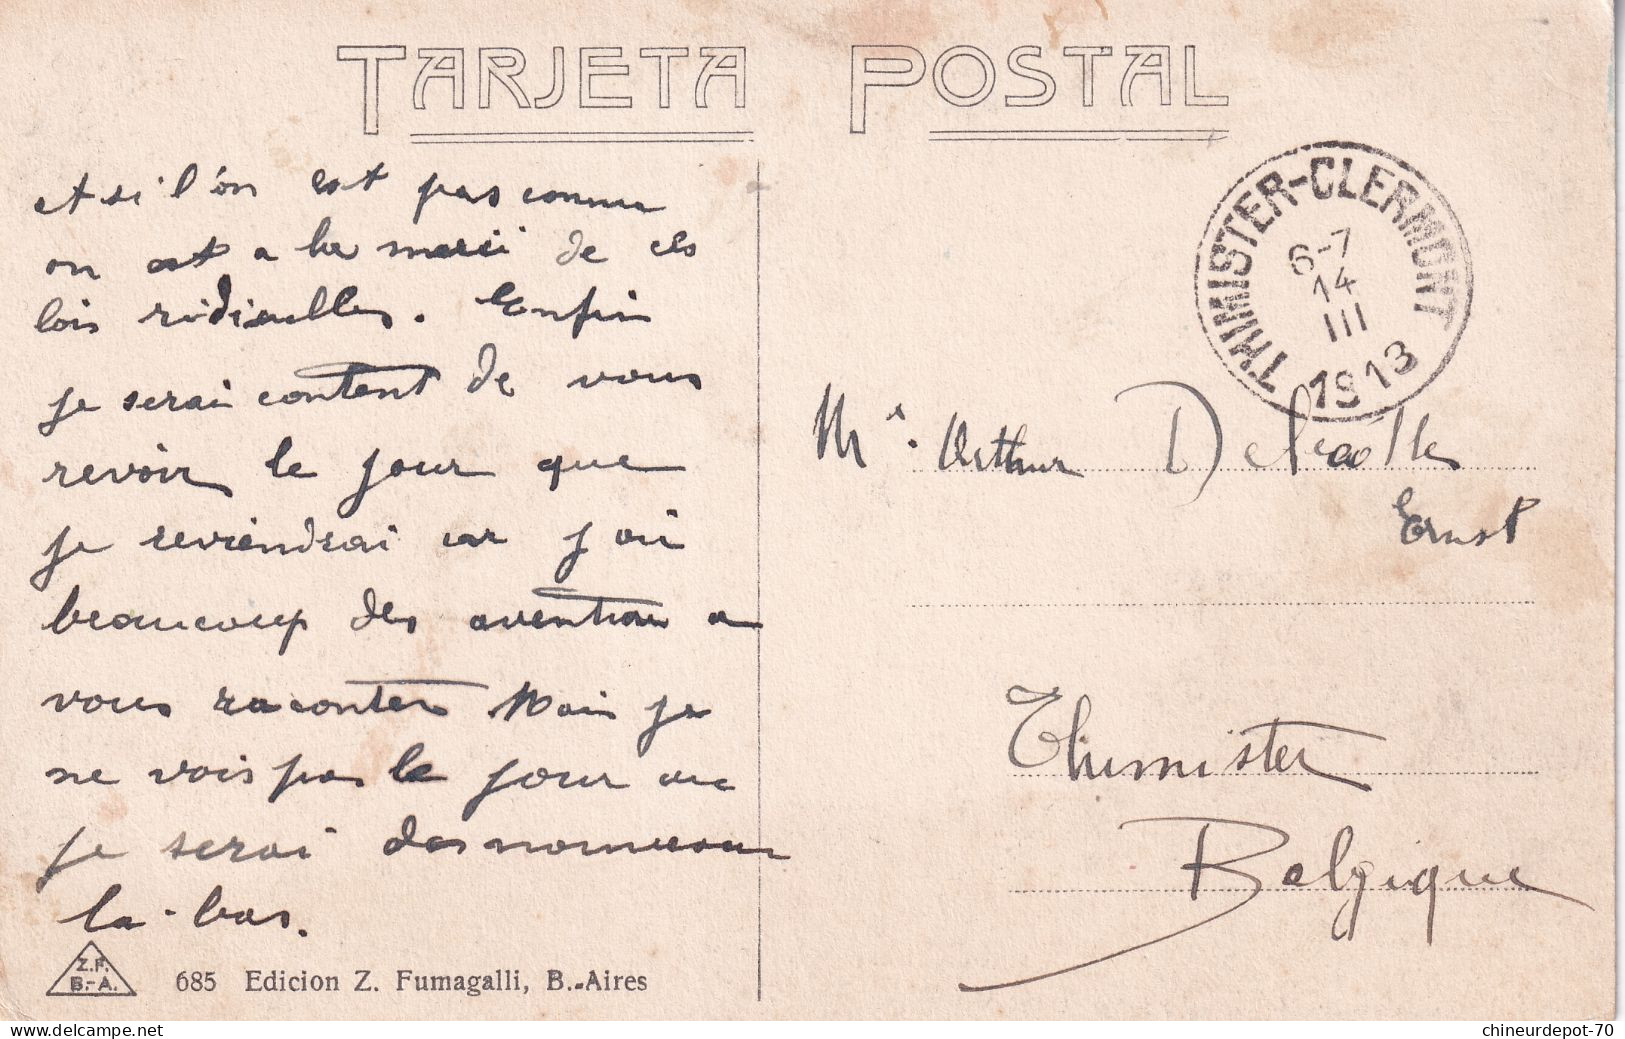 TARJETA POSTAL
et si l'on est pas connu
on est a la merci de ces
lois ridiculles. Enfin
je serai content de vous
revoir le jour que
je reviendrai car j'ai
beaucoup des aventure a
vous raconter Mais je
ne vois pas le jour ou
je serai des nouveau
la-bas.
Z.F.
B.-A.
685 Edicion Z. Fumagalli, B.-Aires
THIMISTER-CLERMONT
6-7
14
III
1913
Mr. Arthur
Ernst
Thimister
Belgique
chineurdepot-70